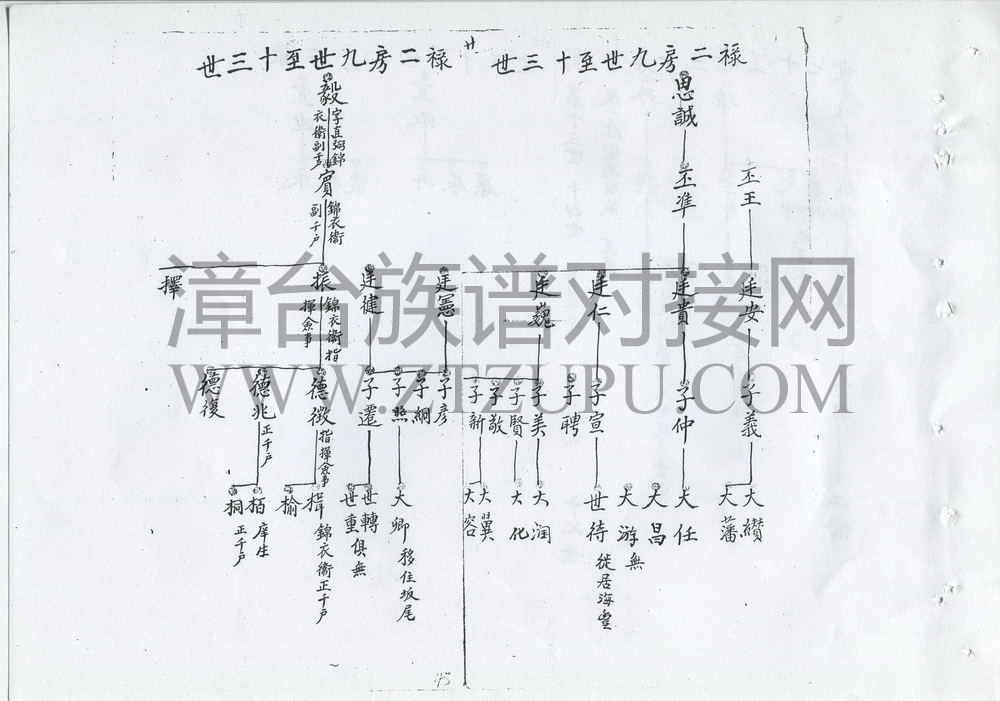 禄二房九世至十三世
思誠
丕準
丕王
廷安
廷貴
廷仁
廷巍
子義
子仲
子宣
子聘
子美
子賢
子敬
子新
大纘
大藩
大任
大昌
大游 無
世待 從居海
大润
大化
大翼
大容
廿
禄二房九世至十三世
毅 字直弼錦衣衛副千
賓 錦衣衛副千户
廷憲
廷健
振 錦衣衛指揮僉事
擇
子彦
子綱
子熙
子還
德徴 指揮僉事
德兆 正千户
德復
大卿 移住坂尾
世轉
世重 俱無
楫 錦衣衛正千户
榆
栢 庠生
桐 正千户
43
漳台族谱对接网
WWW.ZTZUPU.COM